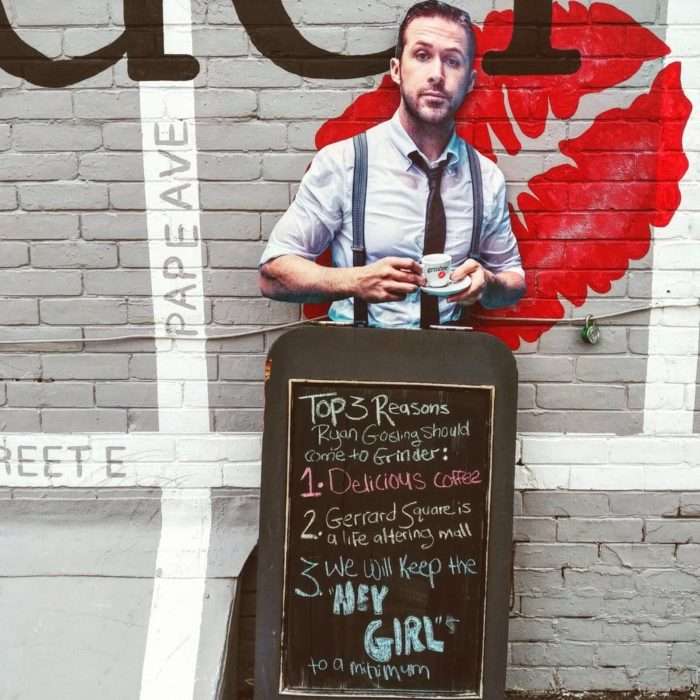 PAPE AVE
REET E
grinder
Top 3 Reasons
Ryan Gosling should
come to Grinder:
1. Delicious coffee
2. Gerrard Square is
a life altering mall
3. We will keep the
"HEY
GIRL"s
to a minimum